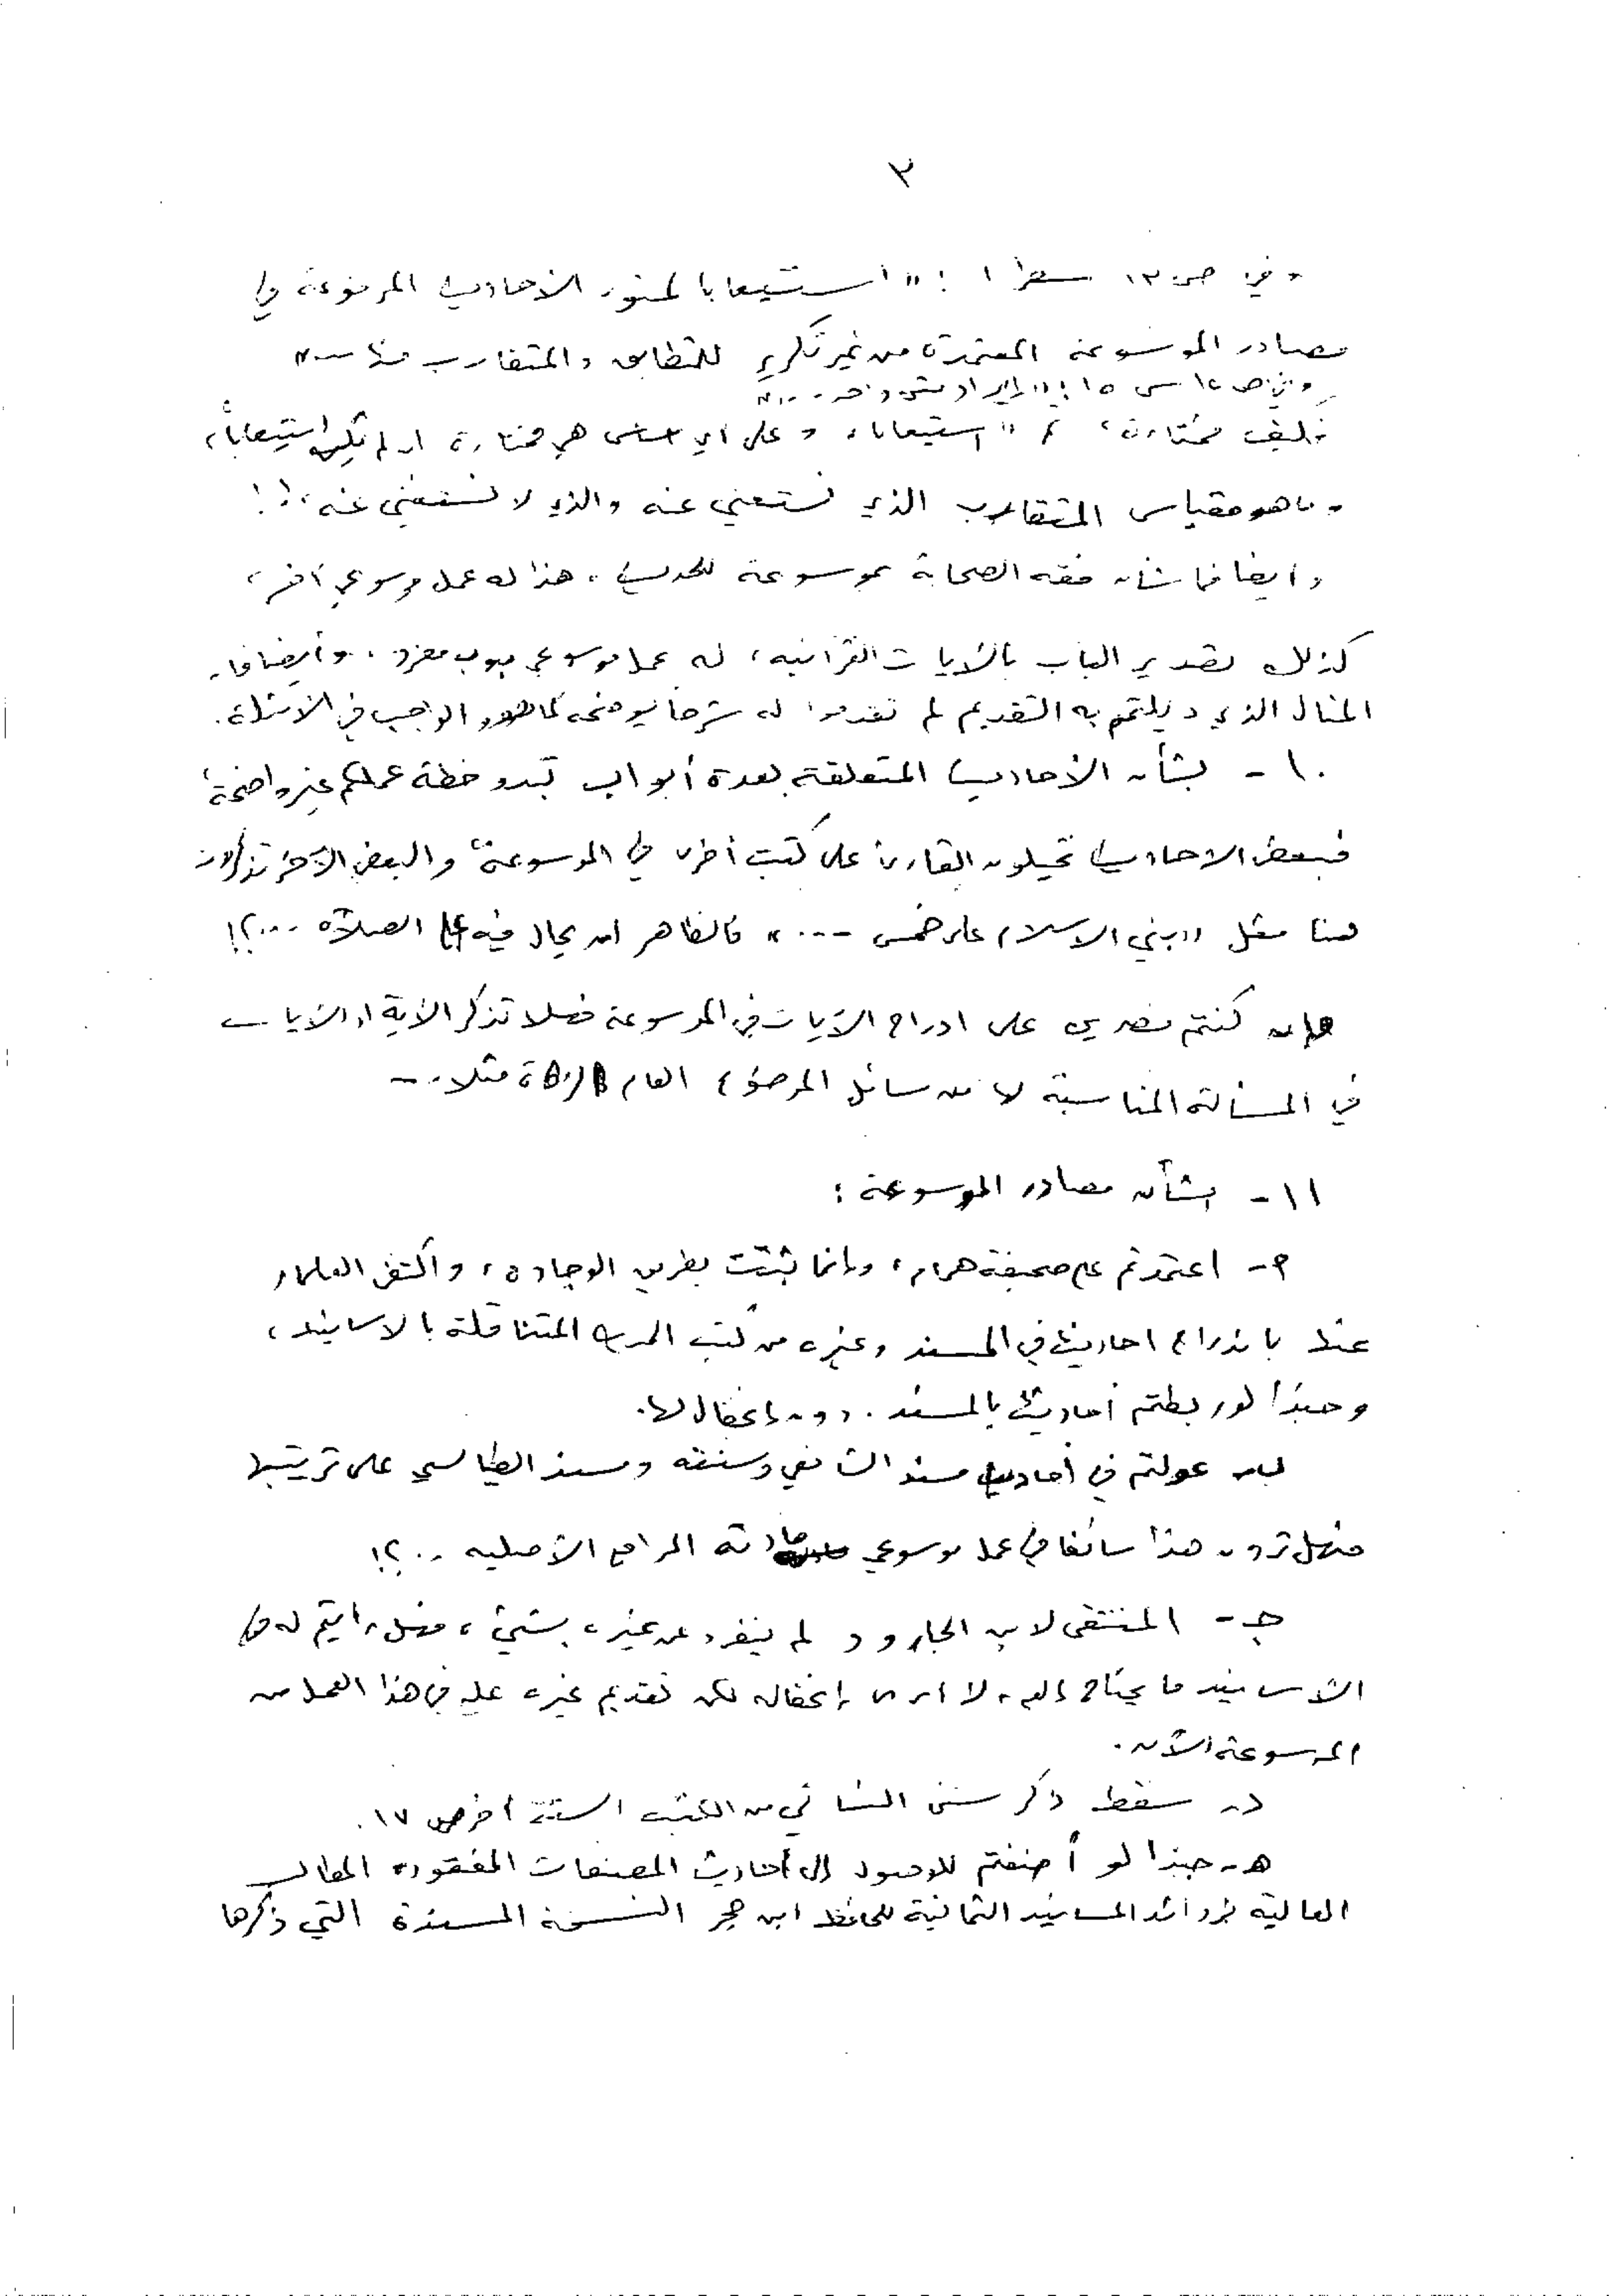 ٣
وفي ص ١٣ سطر ١ : " استيعابا لمتون الأحاديث المرفوعة في
مصادر الموسوعة المعتمدة من غير تكرير للمتطابق والمتقارب منها ... "
وفي ص ١٤ س ١٥ : " إيراد متن واحد ... "
فكيف مختارة، ثم " استيعابا، وعلى أي أساس هي مختارة إن لم تكن استيعاباً،
وما هو مقياس المتقارب الذي نستغني عنه والذي لا نستغني عنه،؟!
وايضا فما شأن فقه الصحابة بموسوعة للحديث، هذا له عمل موسوعي آخر،
كذلك تصدير الباب بالآيات القرآنية، له عمل موسوعي مبوب مفرد. وأيضا فان
المثال الذي ذيلتم به التقديم لم تقدموا له شرحا يوضحه كما هو الواجب في الأمثلة.
١٠ - بشأن الأحاديث المتعلقة بعدة أبواب تبدو خطة عملكم غير واضحة،
فبعض الاحاديث تحيلون القارئ على كتب أخرى في الموسوعة، والبعض الآخر تذكرون
هنا مثل "بني الاسلام على خمس ... " فالظاهر ان يحال فيه إلى الصلاة ...؟!
وإن كنتم مصرين على ادراج الآيات في الموسوعة فهلا تذكر الآية او الآيات
في المسألة المناسبة لها من مسائل الموضوع العام الزكاة مثلا ..
١١ - بشأن مصادر الموسوعة :
٢ - اعتمدتم على صحيفة همام، وإنما ثبتت بطريق الوجادة، واكتفى العلماء
عنها باندراج احاديثها في المسند وغيره من كتب الحديث المتناقلة بالاسانيد،
وحبذا لو ربطتم أحاديثها بالمسند. دون إغفال لها.
ب - عولتم في أحاديث مسند الشافعي وسننه ومسند الطيالسي على ترتيبها
فهل ترون هذا سائغا في عمل موسوعي مادته المراجع الأصلية ..؟!
جـ - المنتقى لابن الجارود لم ينفرد عن غيره بشيء، فهل رأيتم له في
الأسانيد ما يحتاج إليه، لا أرى إغفاله لكن تقديم غيره عليه في هذا العمل من
الموسوعة الآن.
د - سقط ذكر سنن النسائي من الكتب الستة آخر ص ١٧.
هـ - حبذا لو أضفتم للوصول إلى أحاديث المصنفات المفقودة المطالب
العالية بزوائد المسانيد الثمانية للحافظ ابن حجر النسخة المسندة التي ذكرها